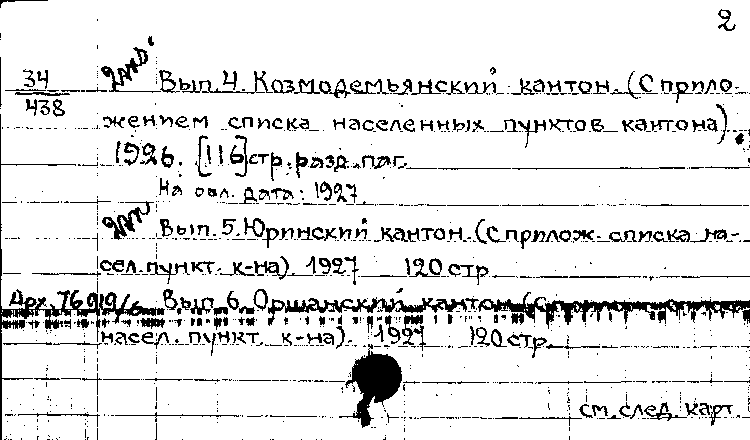 2
34
438
Вып. 4. Козмодемьянский кантон. (С прило-
жением списка населенных пунктов кантона)
1926. [116] стр. разд. паг.
На обл. дата: 1927.
Вып. 5. Юринский кантон. (С прилож. списка на-
сел. пункт. к-на) 1927 120 стр.
Арх. 76919/6 Вып. 6. Оршанский кантон (С прилож. списка
насел. пункт. к-на). 1927 120 стр.
см. след. карт.